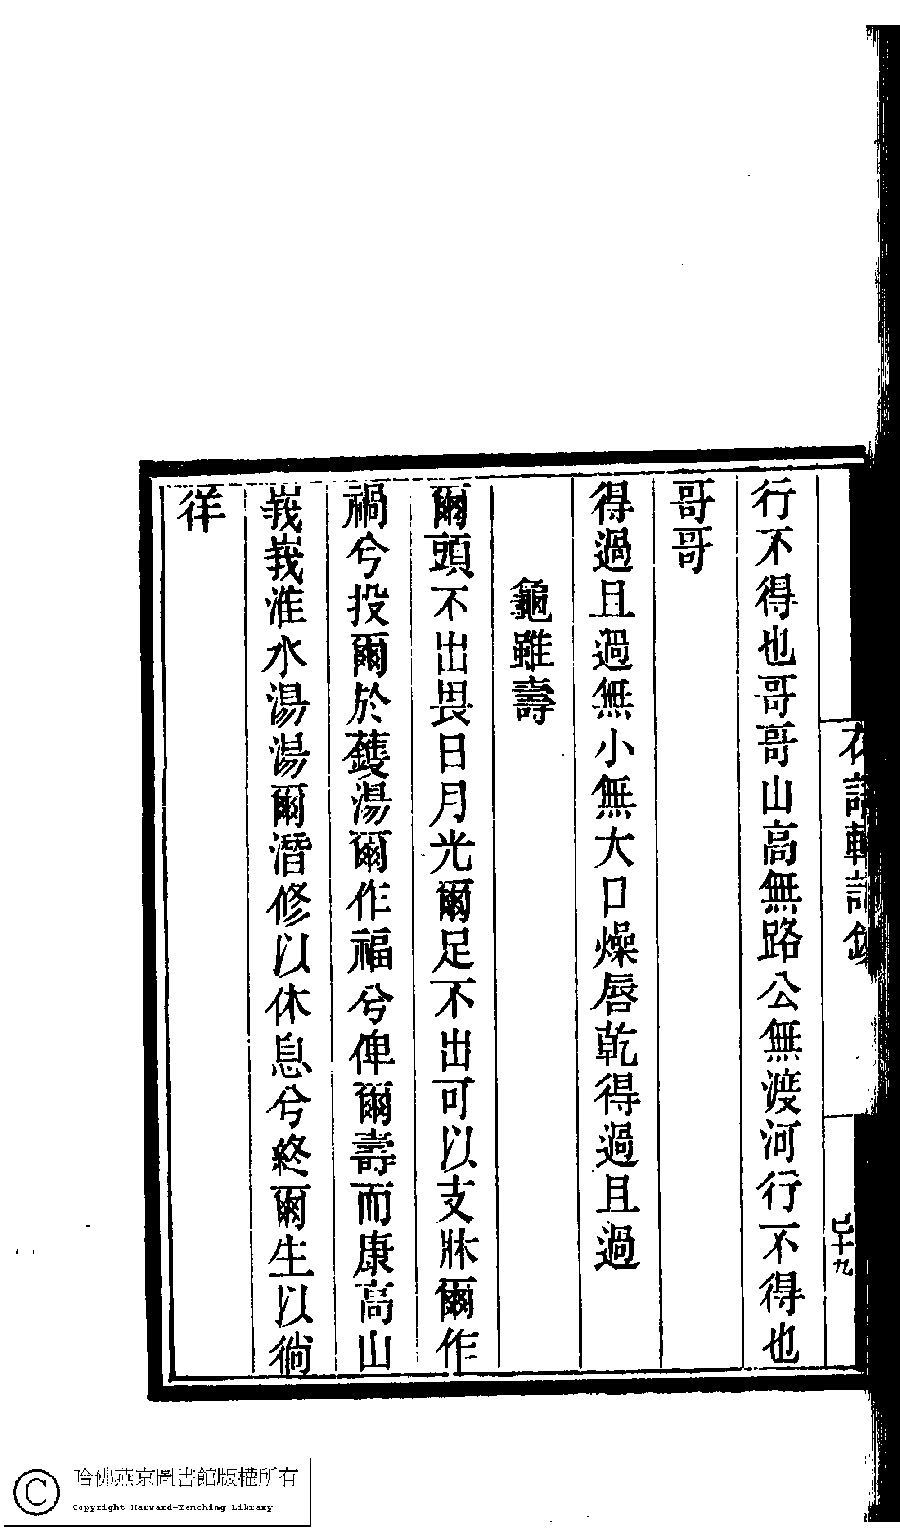 行不得也哥哥山高無路公無渡河行不得也
哥哥
得過且過無小無大口燥唇乾得過且過
龜雖壽
爾頭不出畏日月光爾足不出可以支牀爾作
禍兮投爾於蒦湯爾作福兮俾爾壽而康高山
峩峩淮水湯湯爾潛修以休息兮終爾生以徜
徉
哈佛燕京圖書館版權所有
Copyright Harvard-Yenching Library